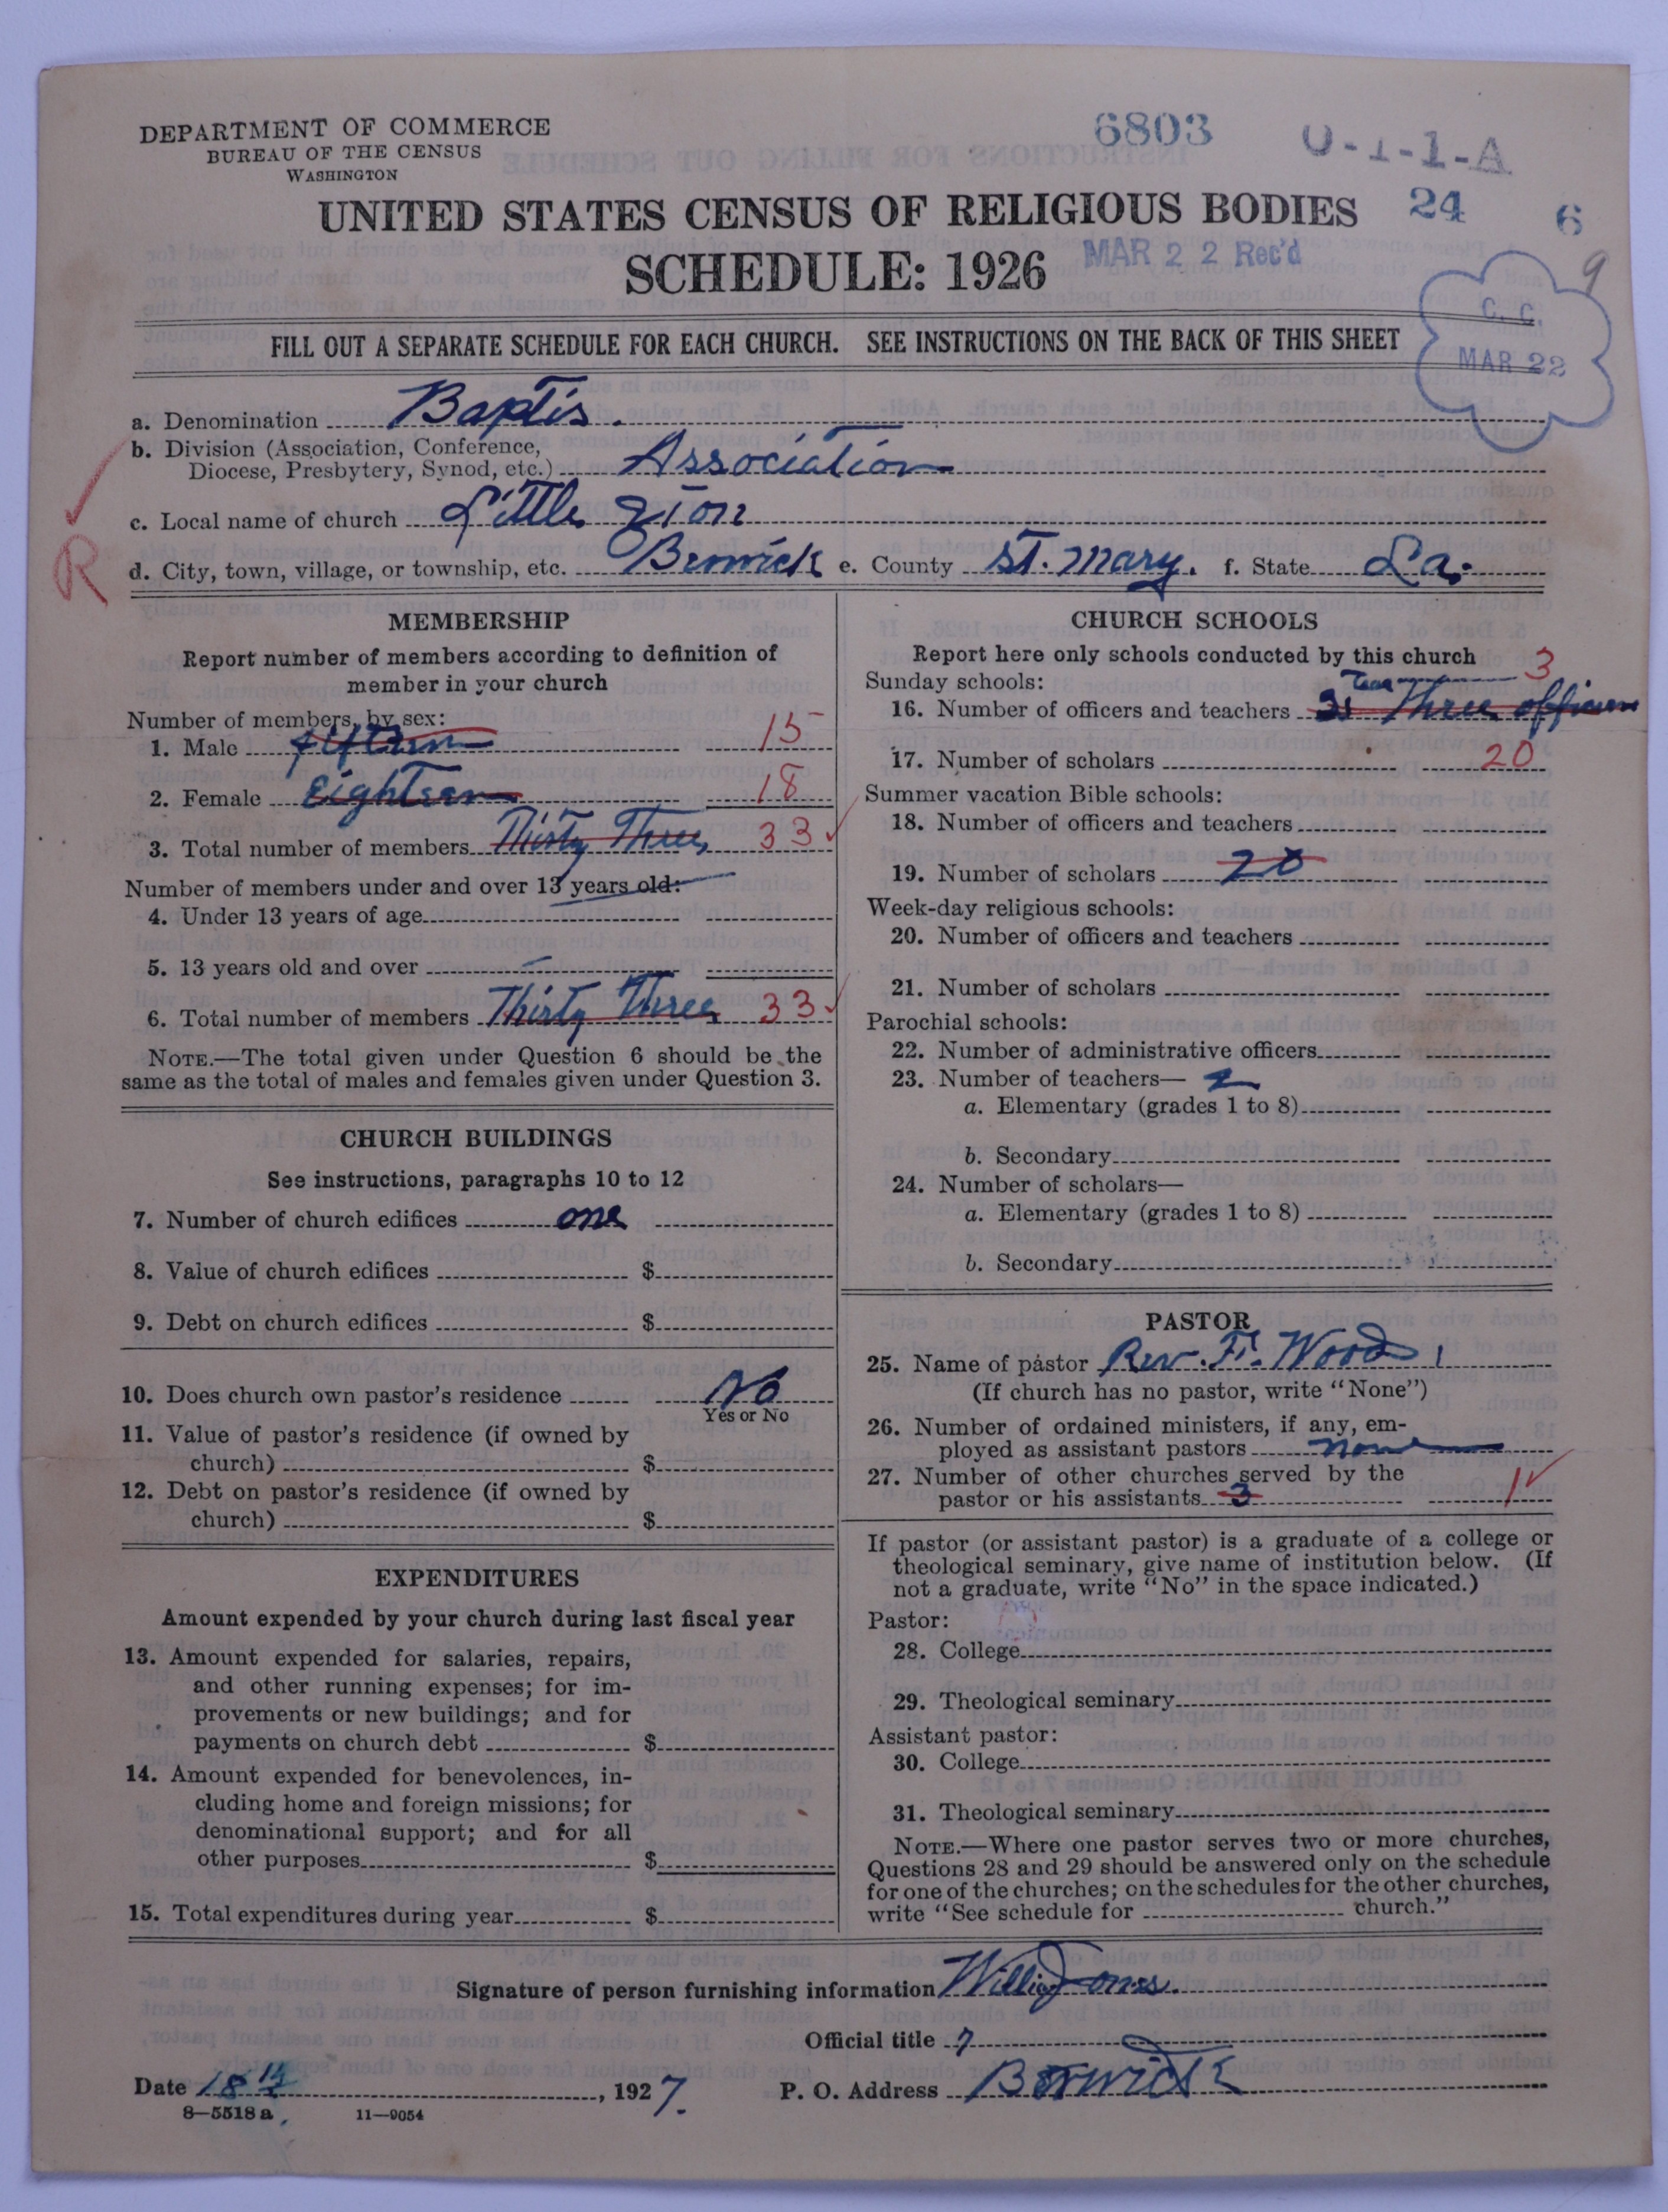 DEPARTMENT OF COMMERCE
BUREAU OF THE CENSUS
WASHINGTON
6803
0-1-1-A
UNITED STATES CENSUS OF RELIGIOUS BODIES
24
6
SCHEDULE: 1926
MAR 22 Rec'd
9
C. C.
MAR 22
FILL OUT A SEPARATE SCHEDULE FOR EACH CHURCH. SEE INSTRUCTIONS ON THE BACK OF THIS SHEET
a. Denomination Baptis.
b. Division (Association, Conference,
Diocese, Presbytery, Synod, etc.) Association
c. Local name of church Little Zion
R
d. City, town, village, or township, etc. Berwick e. County St. Mary. f. State La.
MEMBERSHIP
Report number of members according to definition of
member in your church
Number of members, by sex:
1. Male fifteen 15
2. Female Eighteen 18
3. Total number of members Thirty Three 33
Number of members under and over 13 years old:
4. Under 13 years of age
5. 13 years old and over
6. Total number of members Thirty Three 33
NOTE.—The total given under Question 6 should be the
same as the total of males and females given under Question 3.
CHURCH BUILDINGS
See instructions, paragraphs 10 to 12
7. Number of church edifices one
8. Value of church edifices $
9. Debt on church edifices $
10. Does church own pastor's residence No
Yes or No
11. Value of pastor's residence (if owned by
church) $
12. Debt on pastor's residence (if owned by
church) $
EXPENDITURES
Amount expended by your church during last fiscal year
13. Amount expended for salaries, repairs,
and other running expenses; for im-
provements or new buildings; and for
payments on church debt $
14. Amount expended for benevolences, in-
cluding home and foreign missions; for
denominational support; and for all
other purposes $
15. Total expenditures during year $
CHURCH SCHOOLS
Report here only schools conducted by this church
Sunday schools: 3
16. Number of officers and teachers 3 Three officers
17. Number of scholars 20
Summer vacation Bible schools:
18. Number of officers and teachers
19. Number of scholars 20
Week-day religious schools:
20. Number of officers and teachers
21. Number of scholars
Parochial schools:
22. Number of administrative officers
23. Number of teachers— 2
a. Elementary (grades 1 to 8)
b. Secondary
24. Number of scholars—
a. Elementary (grades 1 to 8)
b. Secondary
PASTOR
25. Name of pastor Rev. F. Woods
(If church has no pastor, write "None")
26. Number of ordained ministers, if any, em-
ployed as assistant pastors none
27. Number of other churches served by the
pastor or his assistants 3 1
If pastor (or assistant pastor) is a graduate of a college or
theological seminary, give name of institution below. (If
not a graduate, write "No" in the space indicated.)
Pastor:
28. College
29. Theological seminary
Assistant pastor:
30. College
31. Theological seminary
NOTE.—Where one pastor serves two or more churches,
Questions 28 and 29 should be answered only on the schedule
for one of the churches; on the schedules for the other churches,
write "See schedule for church."
Signature of person furnishing information Willie Jones.
Official title
Date 18th, 1927. P. O. Address Berwick
8—5518a 11—9054